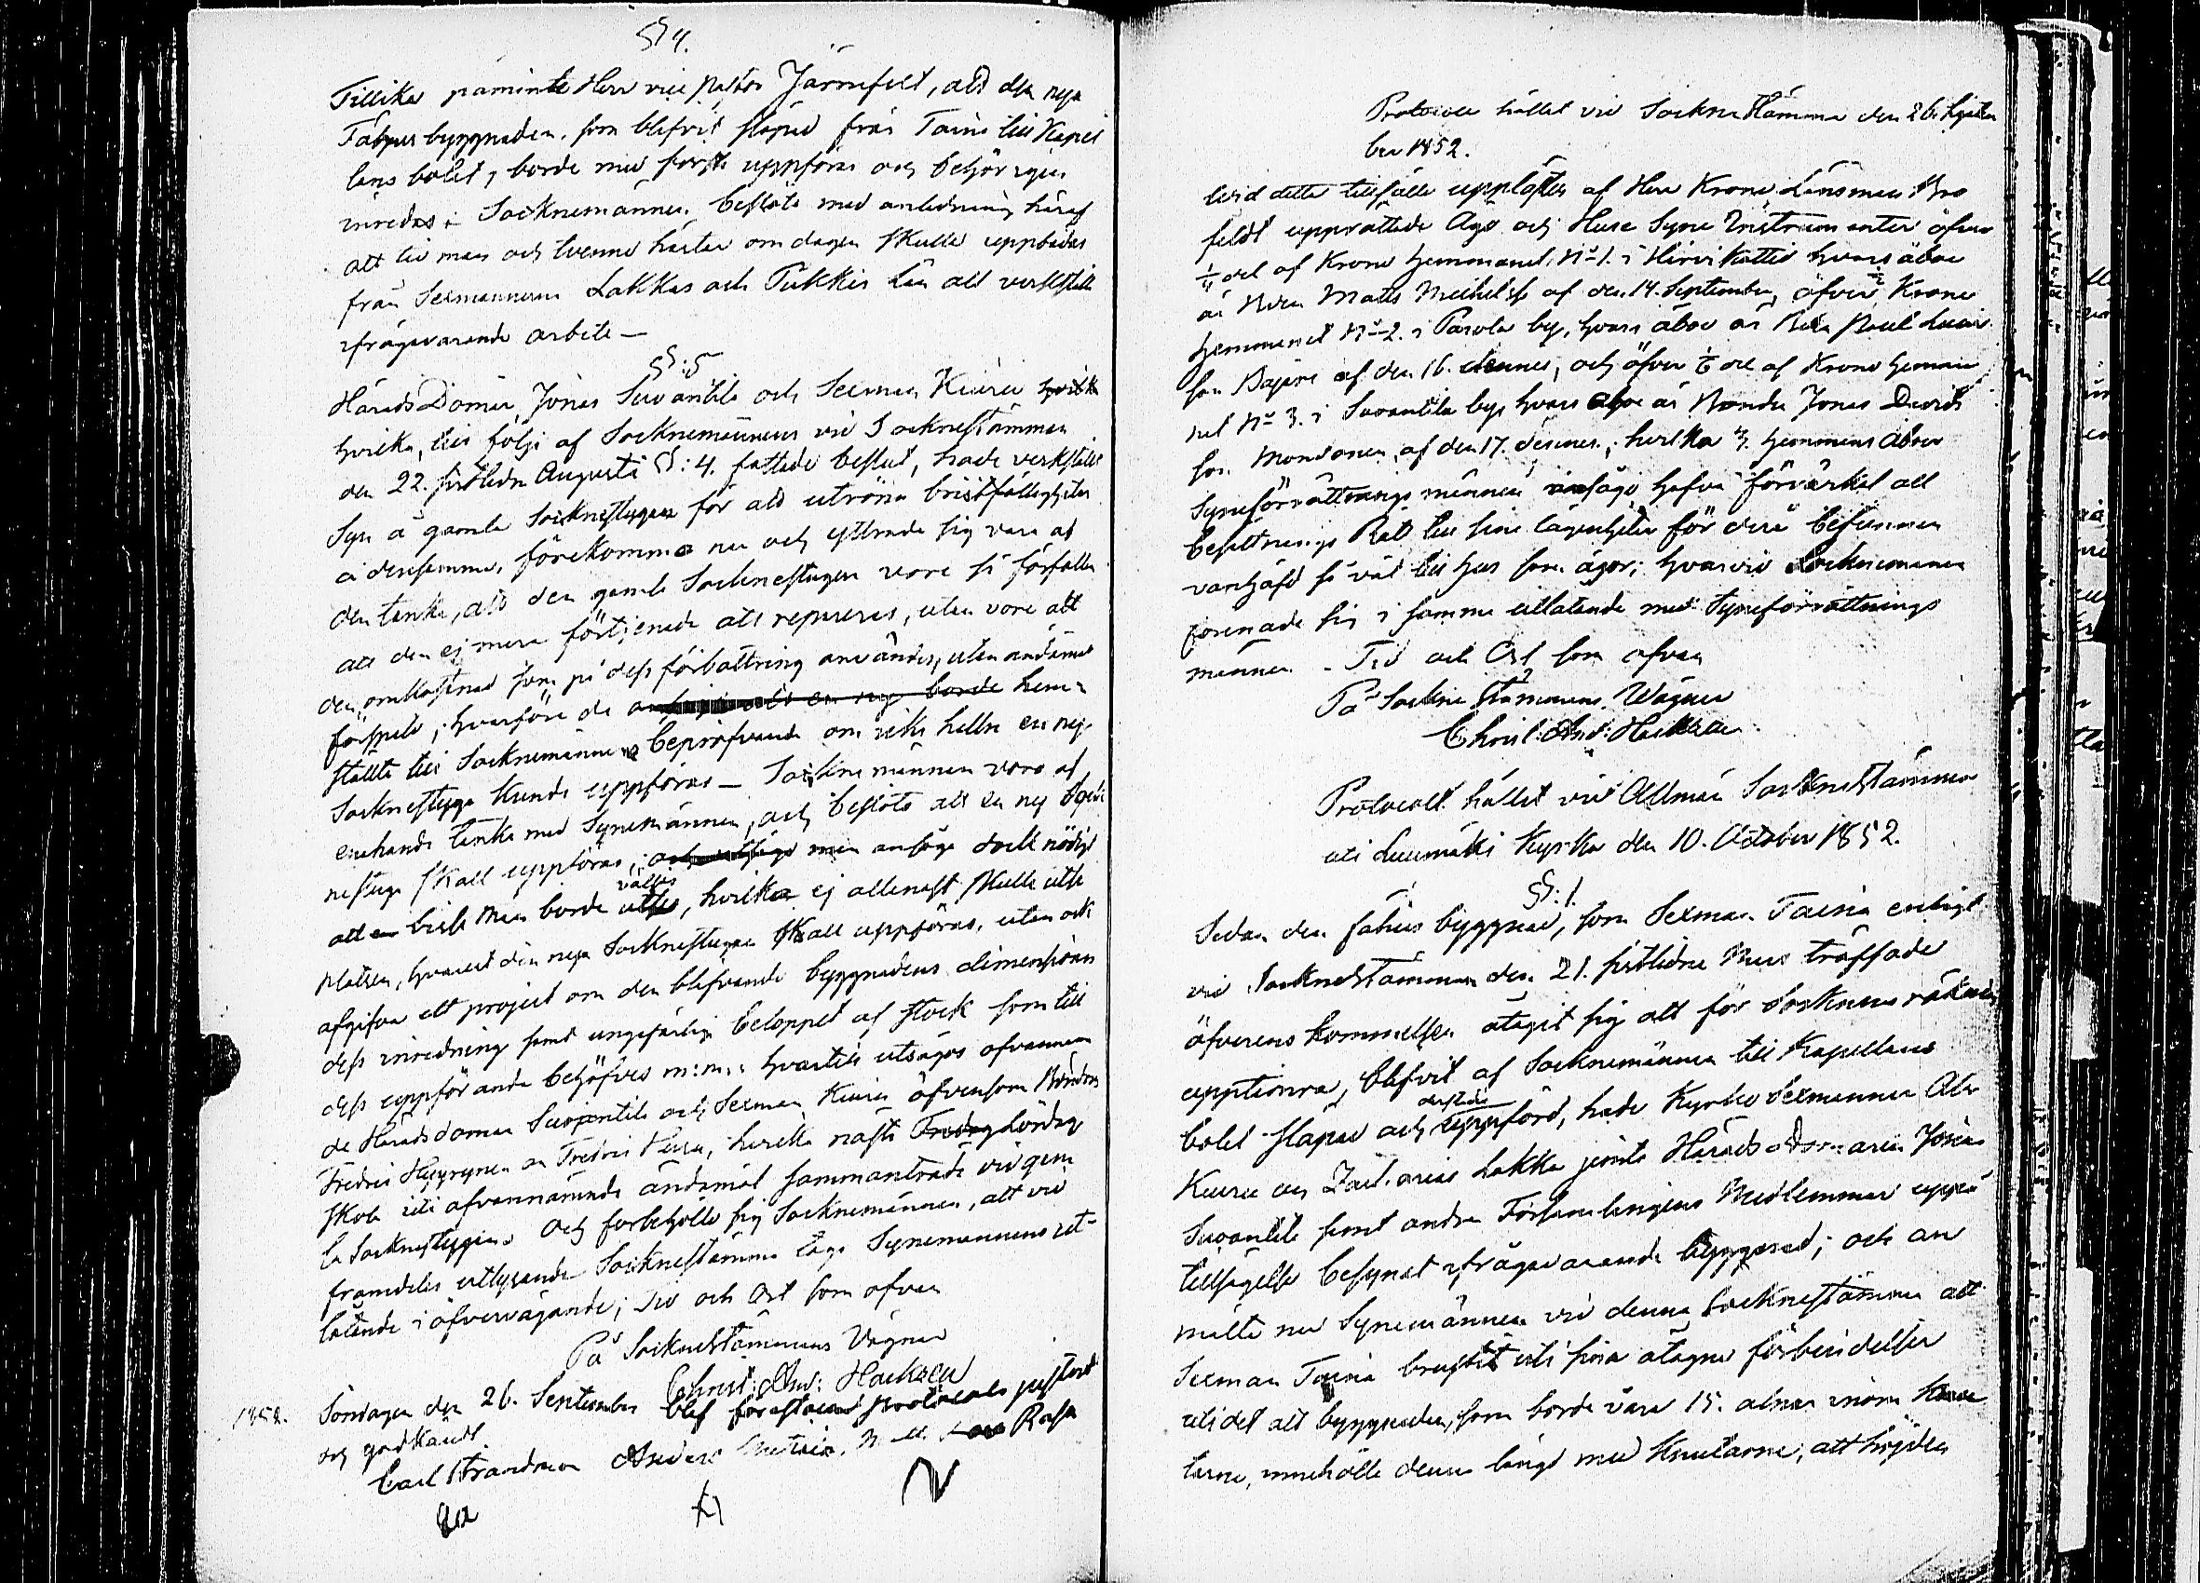 § 4.
Tillika påminte Herr vice Pastor Järnefelt, att den nya
Fähus byggnaden, som blifvit släpad från Taina till Kapel
lans bolet, borde med första uppföras och behörigen
inredas. Socknemännen beslöto med anledning häraf
att tio man och tvenne hästar om dagen skulle uppbådas
från Sexmannen Lakkas och Pukkis Län att verkställa
ifrågavarande arbete —
§:5
Härads Domar Jonas Suvantila och Sexman Kiuru
hvilka, till följe af Socknemännens vid Socknestämman
den 22. sistledne Augusti §:4. fattade beslut, hade verkstält
Syn å gamla Socknestugan för att utröna bristfälligheten
å densamma, förekommo nu och yttrade sig vara af
den tanke, att den gamla Socknestugan vore så förfallen
att den ej mera förtjenade att repareras, utan vore all
den omkostnad som på dess förbättring användes, utan ändamål
förspild; hvarföre de hem-
ställte till Socknemännens bepröfvande om icke hellre en ny
Socknestuga kunde uppföras — Socknemännen voro af
enahanda tanke med Synemännen, och beslöto att en ny Sock
nestuga skall uppföras, men ansågo dock nödigt
att borde väljas, hvilka ej allenast skulle utse
platsen, hvarest den nya Socknestugan skall uppföras, utan ock
afgifva ett project om den blifvande byggnadens dimension
dess inredning samt ungefärliga beloppet af stock som till
dess uppförande behöfves m:m:; hvartill utsågos ofvannämn
de Häradsdomar Suvantila och Sexman Kiuru äfvensom Bönderne
Fredric och Fredric, hvilka nästa Lördag
skola uti ofvannämnde ändamål sammanträda vid gam
la Socknestugan. Och förbehöllo sig Socknemännen, att vid
framdeles utlysande Sockne stämma taga Synemännens ut-
låtande i öfvervägande; Tid och Ort som ofvan
På Socknestämmans Vägnar
Christ: And: Hackzell
1852. Söndagen den 26. September blef förestående protocoll justerat
och godkändt
Carl Strandman Anders
Protocoll hållet vid Sockne Stämma den 26. Septem
ber 1852.
Vid detta tillfälle upplästes af Herr Krono Länsman Bro
feldt upprättade Ägo och Huse Syne Instrumenter öfver
del af Krono hemmanet N:o 1. i Hirvikallio hvars åboe
är Bonden Matts Michelss. af den 14. September, öfver Krono
hemmanet N:o 2. i Parola by, hvars åboe är Paul
son af den 16. dennes, och öfver del af Krono hemma
net N:o 3. i Suvantila by, hvars åboe är Bonden Jonas Davids
son Mononen, af den 17. dennes; hvilka 3. hemmans åboer
Syneförrättnings männen ansågo hafva förvärkat all
besittnings Rätt till sine lägenheter för derå befunnen
vanhäfd så väl till hus som ägor; hvarvid Socknemännen
förenade sig i samma utlåtande med Syneförrättnings
männen. - Tid och Ort som ofvan
På Sockne Stämmans Vägnar
Christ: And: Hackzell.
Protocoll hållet vid Allmän Socknestämma
uti Luumäki Kyrka den 10. October 1852.
§:1.
Sedan den fähus byggnad, som Sexman Taina enligt
vid Sockne Stämman den 21. sistledne Mars träffade
öfverenskommelsen åtagit sig att för Socknens räkning
upptimra, blifvit af Socknemännen till Kapellans
bolet släpad och derstädes uppförd, hade Kyrko Sexmannen Abr.
Kiuru och Zachrias Lakka jemte Härads Domaren Jonas
Suvantila samt andra Församlingens Medlemmar uppå
tillsägelse besynat ifrågavarande byggnad; och an
mälte nu Synemännen vid denna Socknestämma att
Sexman Taina brustit uti sina åtagna förbindelser
uti det att byggnaden, som borde vara 15. alnar inom knu
tarne, innehölle denna längd med knutarne; att höjden